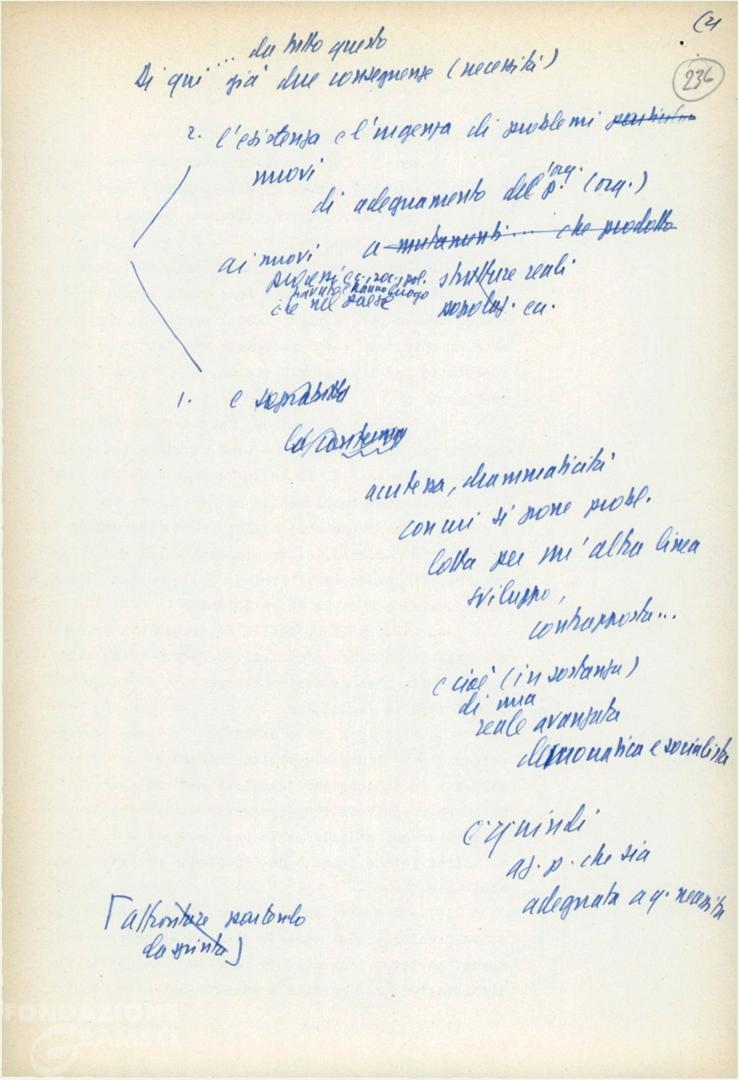 (2)
236
... da tutto questo
Di qui già due conseguenze (necessità)
2. l'esistenza e l'urgenza di problemi
nuovi
di adeguamento dell'org.
p. (org.)
ai nuovi a mutamenti... che prodotto
processi ec., soc., pol.
che nel paese hanno luogo
strutture reali
ec.
1. e soprattutto
acutezza, drammaticità
con cui si pone probl.
lotta per un'altra linea
sviluppo,
contrapposta...
e cioè (in sostanza)
di una
reale avanzata
democratica e socialista
e quindi
az. p. che sia
adeguata a q. necessità
[affrontare partendo
da spinta]
FONDAZIONE
GRAMSCI